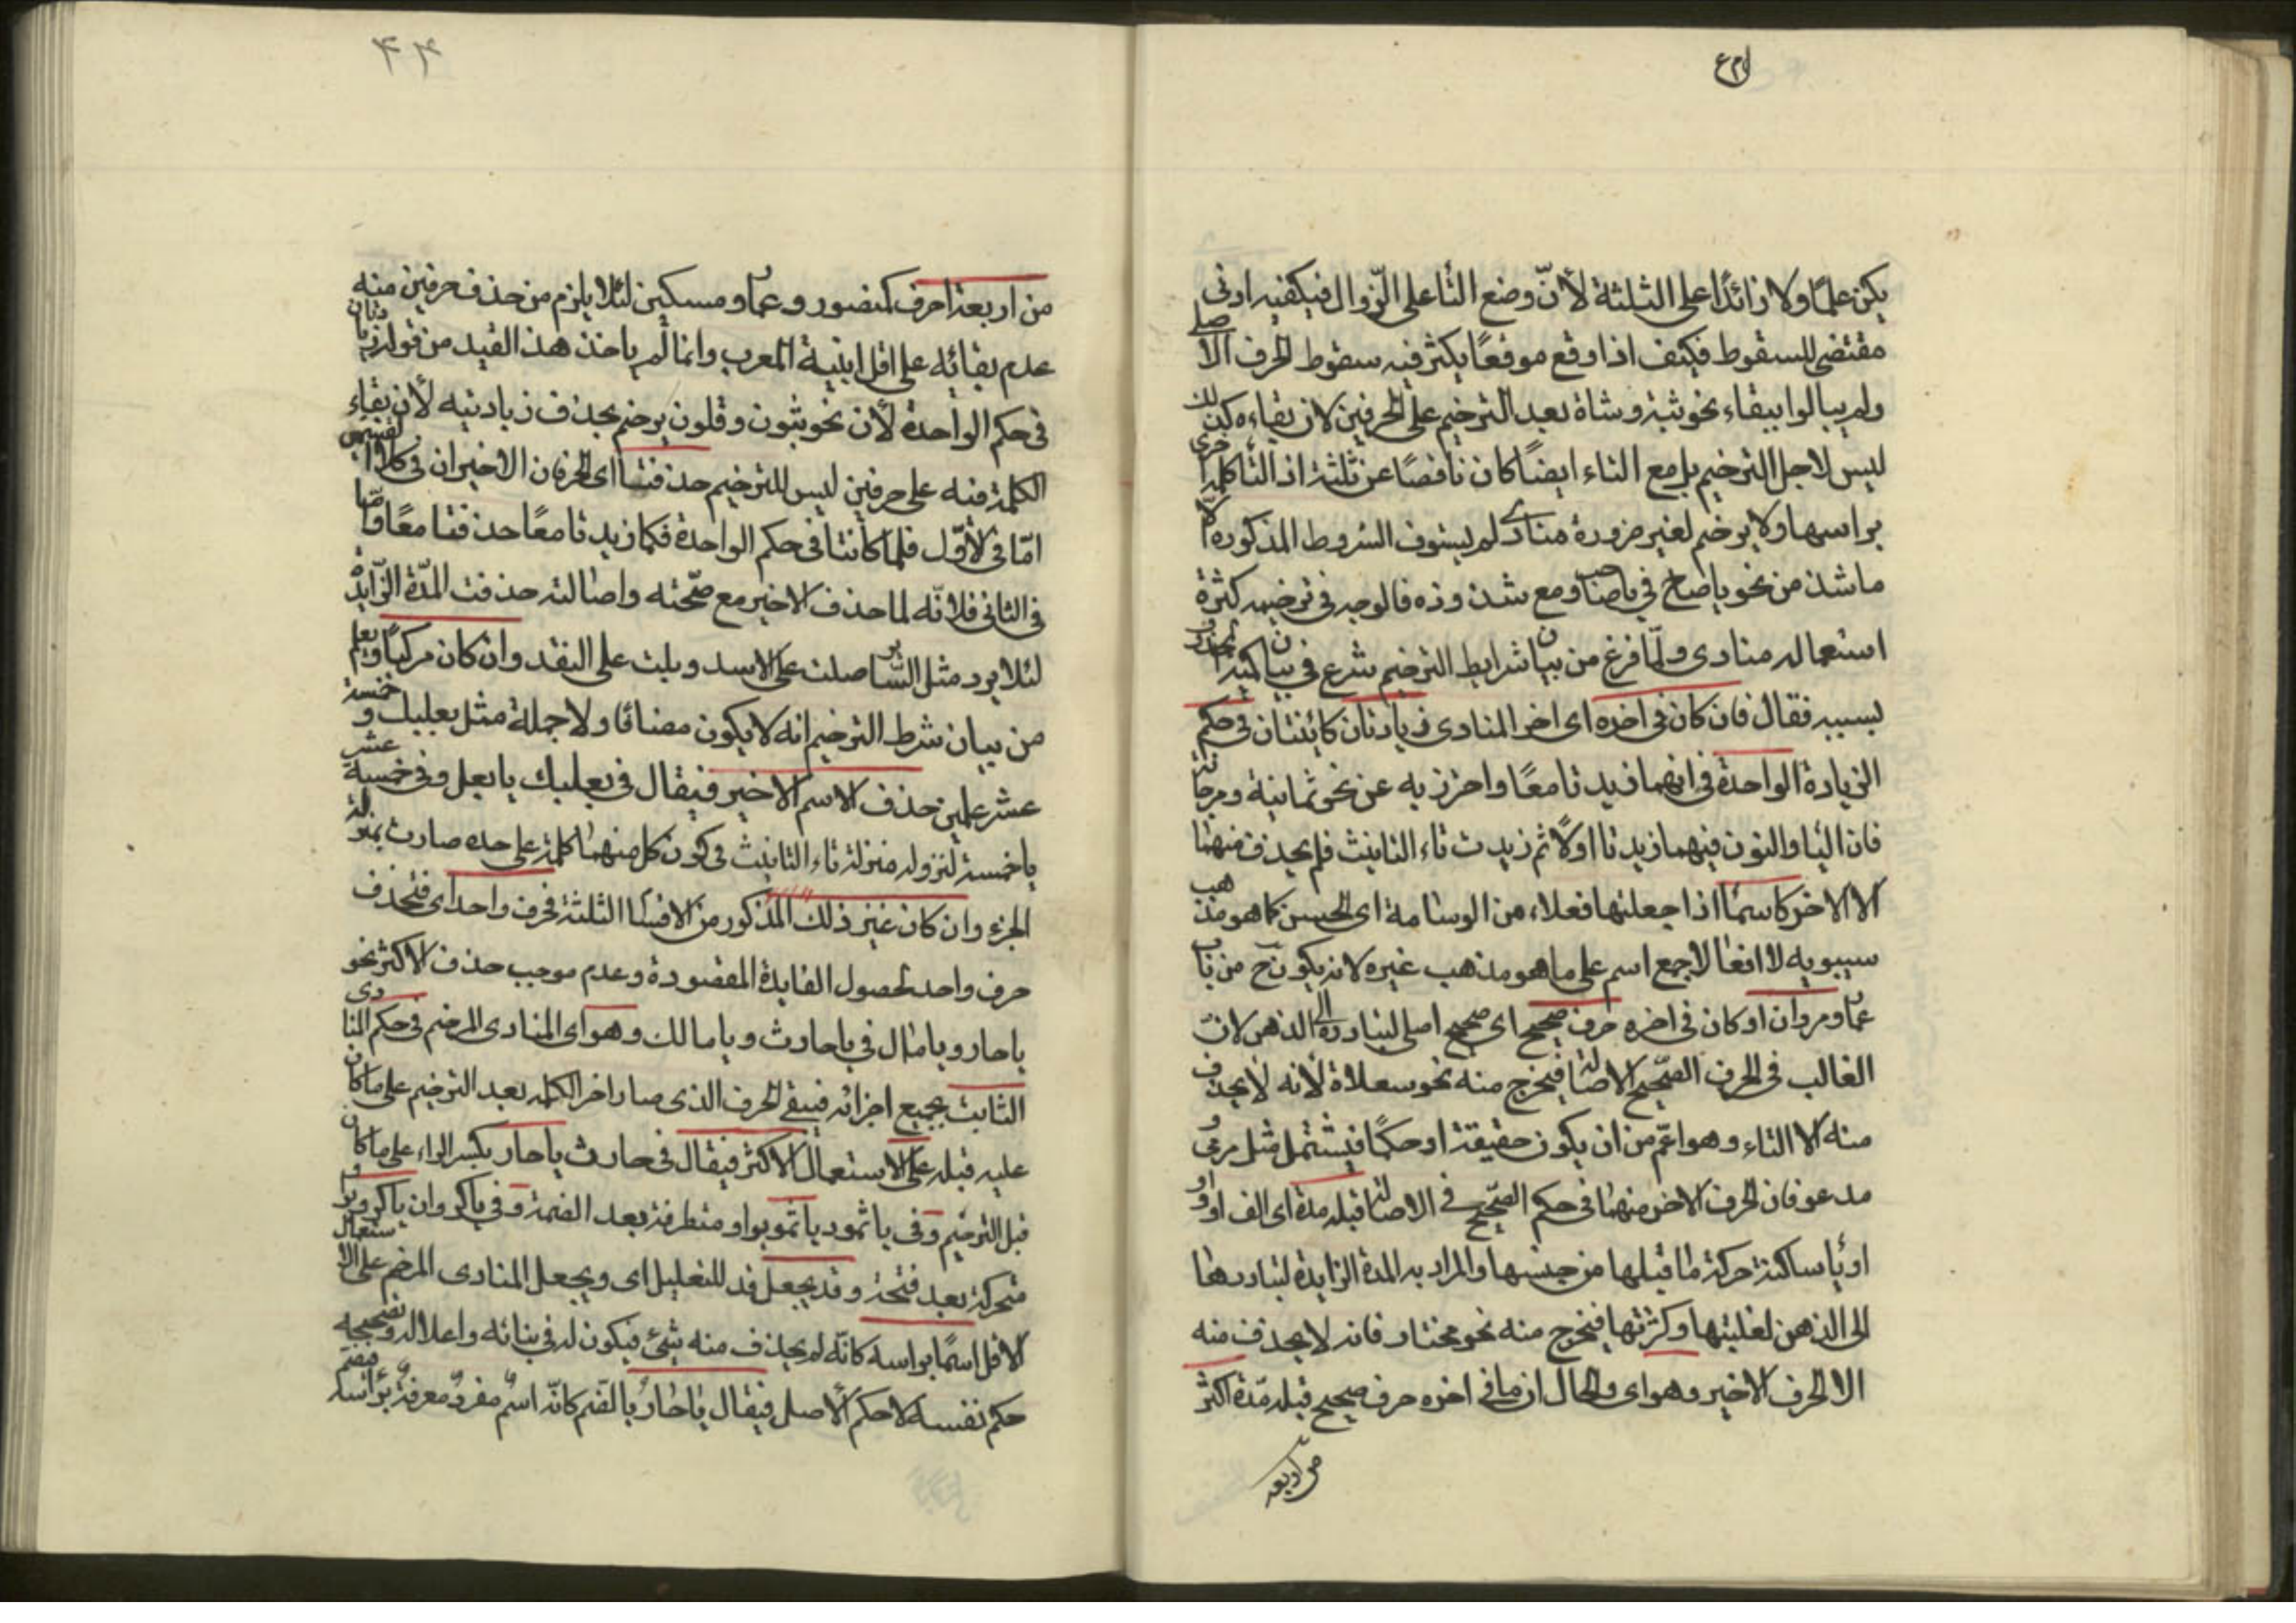 يكن علمًا ولا زائدًا على الثلثة لأنّ وضع التا على الزّوال فيكفيه ادنى
مقتضى للسقوط فكيف اذا وقع موقعًا يكثر فيه سقوط الحرف الاصلى
ولم يبالوا ببقاء نحو ثبة وشاة بعد الترخيم على الحرفين لان بقاءه كذلك
ليس لاجل الترخيم بل مع التاء ايضًا كان ناقصًا عن ثلثة اذ التأ كلمة اخرى
براسها ولا يرخم لغير ضرورة منادى لم يستوف الشروط المذكورة الا
ما شذ من نحو ياصاح في ياصاحب ومع شذوذه فالوجه فى ترخيمه كثرة
استعماله منادى ولمّا فرغ من بيان شرايط الترخيم شرع فى بيان كمية المحذوف
بسببه فقال فان كان فى اخره اى اخر المنادى زيادتان كائنتان فى حكم
الزيادة الواحدة فى انهما زيدتا معًا واحترز به عن نحو ثمانية ومرجانة
فان اليا والنون فيهما زيدتا اولًا ثم زيدت تاء التانيث فلم يحذف منهما
الا الاخر كاسمأ اذا جعلتها فعلاء من الوسامة اى الحسن كما هو مذهب
سيبويه لا افعالا جمع اسم على ما هو مذهب غيره لانه يكون ح من باب
عمار ومروان او كان فى اخره حرف صحيح اى صحيح اصلى لتبادره الى الذهن لان
الغالب فى الحرف الصّحيح الاصالة فيخرج منه نحو سعلاة لأنه لا يحذف
منه الا التاء وهو اعّم من ان يكون حقيقة او حكمًا فيشتمل مثل مرمى و
مدعو فان الحرف الاخر منهما فى حكم الصّحيح فى الاصالة قبله مدة اى الف او واو
او يأ ساكنة حركة ما قبلها من جنسها والمراد به المدة الزايدة لتبادرها
الى الذهن لغلبتها وكثرتها فيخرج منه نحو مختار فانه لا يحذف منه
الا الحرف الاخير وهو اى والحال ان ما فى اخره حرف صحيح قبله مدّة اكثر
من اربعة
۴۴
من اربعة احرف كمنصور وعمار ومسكين لئلا يلزم من حذف حرفين منه
عدم بقائه على اقل ابنية المعرب وانما لم ياخذ هذ القيد من قوله زيادتان
فى حكم الواحدة لأن نحو ثبون وقلون يرخم بحذف زيادتيه لأن بقاء
الكلمة فيه على حرفين ليس للترخيم حذفتا اى الحرفان الاخيران فى كلا القسمين
امّا فى الأوّل فلما كانتا فى حكم الواحدة فكما زيدتا معًا حذفتا معًا وامّا
فى الثانى فلانّه لما حذف الاخير مع صحّته واصالته حذفت المدّة الزّايدة
لئلا يرد مثل السّاير صلت على الاسد وبلت على النقد وان كان مركبًا ويعلم
من بيان شرط الترخيم انه لا يكون مضافا ولا جملة مثل بعلبك وخمسة
عشر علمين حذف الاسم الاخير فيقال فى بعلبك يا بعل وفى خمسة عشر
يا خمسة لنزوله منزلة تاء التانيث فى كون كل منهما كلمة على حده صارت بمنزلة
الجزء وان كان غير ذلك المذكور من الاقسام الثلثة فحرف واحد اى فتحذف
حرف واحد لحصول الفايدة المقصودة وعدم موجب حذف الاكثر نحو
يا حار ويا مال فى يا حارث ويا مالك وهو اى المنادى المرخم فى حكم المنادى
الثابت بجميع اجزائه فيبقى الحرف الذى صار اخر الكلمه بعد الترخيم على ما كان
عليه قبله على الاستعمال الاكثر فيقال فى حارث يا حار بكسر الراء على ما كان
قبل الترخيم وفى يا ثمود يا ثمو بواو متطرفة بعد الضمة وفى يا كروان يا كرو بواو
متحركة بعد فتحة وقد يجعل قد للتقليل اى ويجعل المنادى المرخم على الاستعمال
الاقل اسمًا براسه كانّه لم يحذف منه شئ فيكون له فى بنائه واعلاله وتصحيحه
حكم نفسه لا حكم الأصل فيقال يا حارُ بالضّم كانّه اسمٌ مفردٌ معرفةٌ برأسه